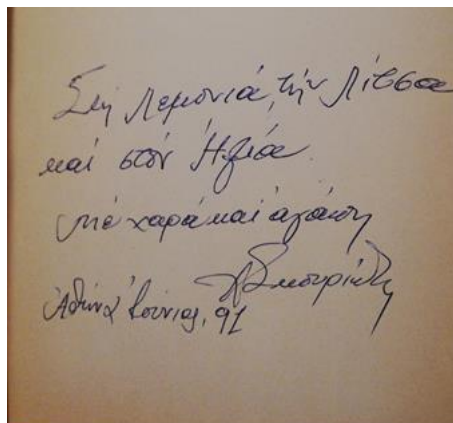 Στή Λεμονιά, τήν Λίτσα
καί στόν Ἠλία
μέ χαρά καί ἀγάπη
Ἀθήνα Ἰούνιος, 91